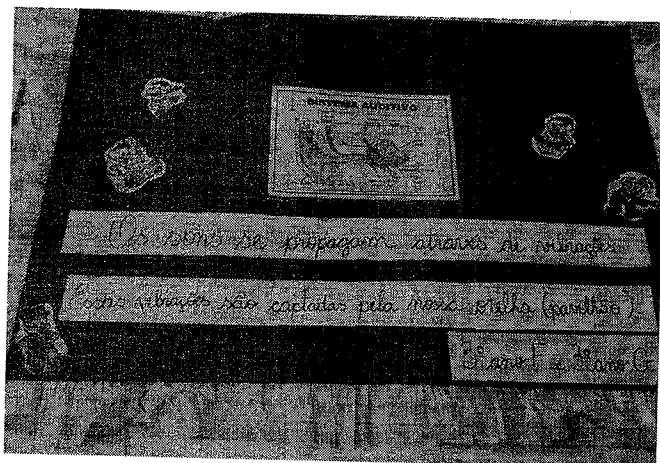 SISTEMA AUDITIVO
Os sons se propagam através de vibrações
Essas vibrações são captadas pela nossa orelha (pavilhão).
3º ano F e 4º ano G